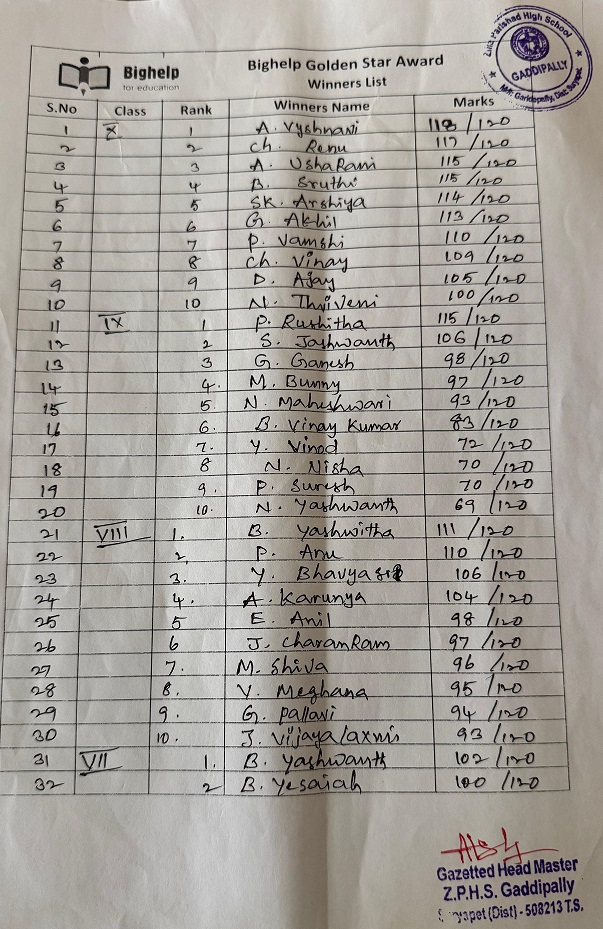 Zilla Parishad High School
GADDIPALLY
Mdl: Garidepally, Dist: Suryapet
Bighelp
for education
Bighelp Golden Star Award
Winners List
S.No Class Rank Winners Name Marks
1 X 1 A. Vyshnavi 118/120
2 2 Ch. Renu 117/120
3 3 A. UshaRani 115/120
4 4 B. Sruthi 115/120
5 5 SK. Arshiya 114/120
6 6 G. Akhil 113/120
7 7 P. Vamshi 110/120
8 8 Ch. Vinay 109/120
9 9 D. Ajay 105/120
10 10 N. Thriveni 100/120
11 IX 1 P. Rushitha 115/120
12 2 S. Jashwanth 106/120
13 3 G. Ganesh 98/120
14 4. M. Bunny 97/120
15 5. N. Maheshwari 93/120
16 6. B. Vinay Kumar 83/120
17 7. Y. Vinod 72/120
18 8 N. Nisha 70/120
19 9. P. Suresh 70/120
20 10. N. Yashwanth 69/120
21 VIII 1. B. Yashwitha 111/120
22 2. P. Anu 110/120
23 3. Y. Bhavyasri 106/120
24 4. A. Karunya 104/120
25 5 E. Anil 98/120
26 6 J. CharanRam 97/120
27 7. M. Shiva 96/120
28 8. V. Meghana 95/120
29 9. G. Pallavi 94/120
30 10. J. Vijayalaxmi 93/120
31 VII 1. B. Yashwanth 102/120
32 2 B. Yesaiah 100/120
Gazetted Head Master
Z.P.H.S. Gaddipally
Suryapet (Dist) - 508213 T.S.